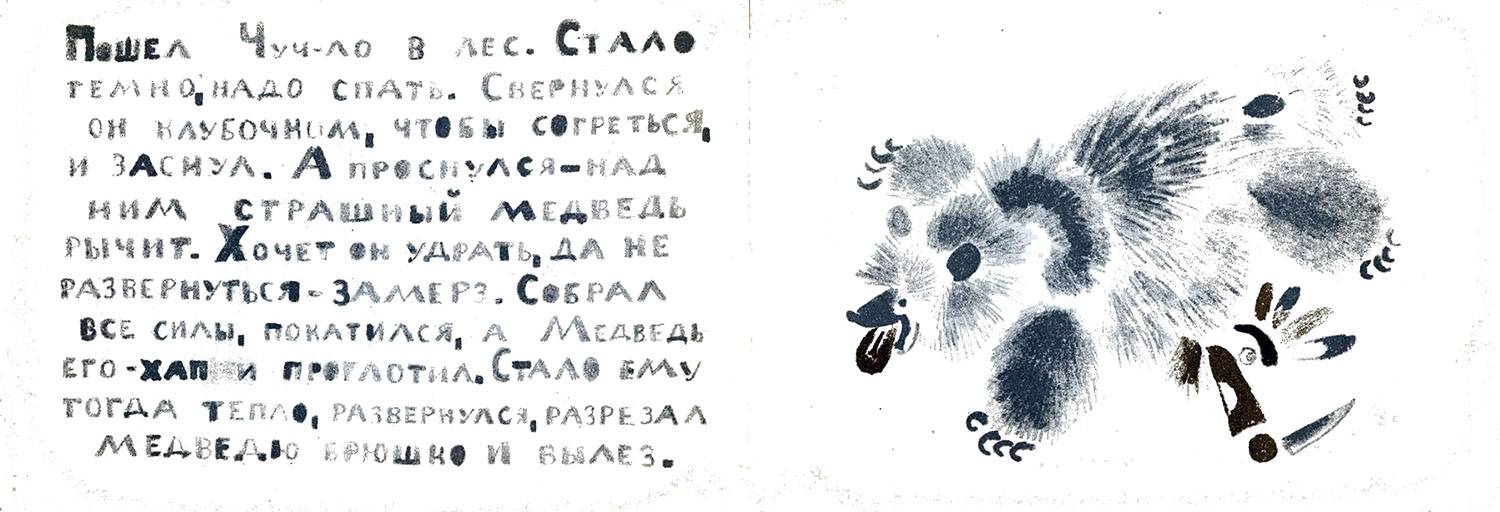 Пошел Чуч-ло в лес. Стало
темно, надо спать. Свернулся
он клубочком, чтобы согреться,
и заснул. А проснулся-над
ним страшный медведь
рычит. Хочет он удрать, да не
развернуться-замерз. Собрал
все силы, покатился, а Медведь
его-хап и проглотил. Стало ему
тогда тепло, развернулся, разрезал
медведю брюшко и вылез.